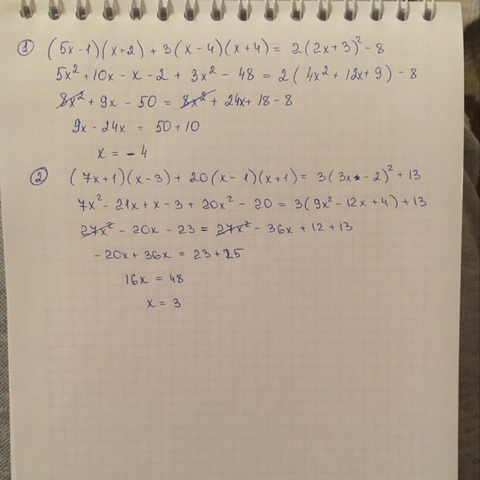 ① (5x-1)(x+2) + 3(x-4)(x+4) = 2(2x+3)² - 8
5x² + 10x - x - 2 + 3x² - 48 = 2(4x² + 12x + 9) - 8
8x² + 9x - 50 = 8x² + 24x + 18 - 8
9x - 24x = 50 + 10
x = - 4
② (7x+1)(x-3) + 20(x-1)(x+1) = 3(3x-2)² + 13
7x² - 21x + x - 3 + 20x² - 20 = 3(9x² - 12x + 4) + 13
27x² - 20x - 23 = 27x² - 36x + 12 + 13
-20x + 36x = 23 + 25
16x = 48
x = 3